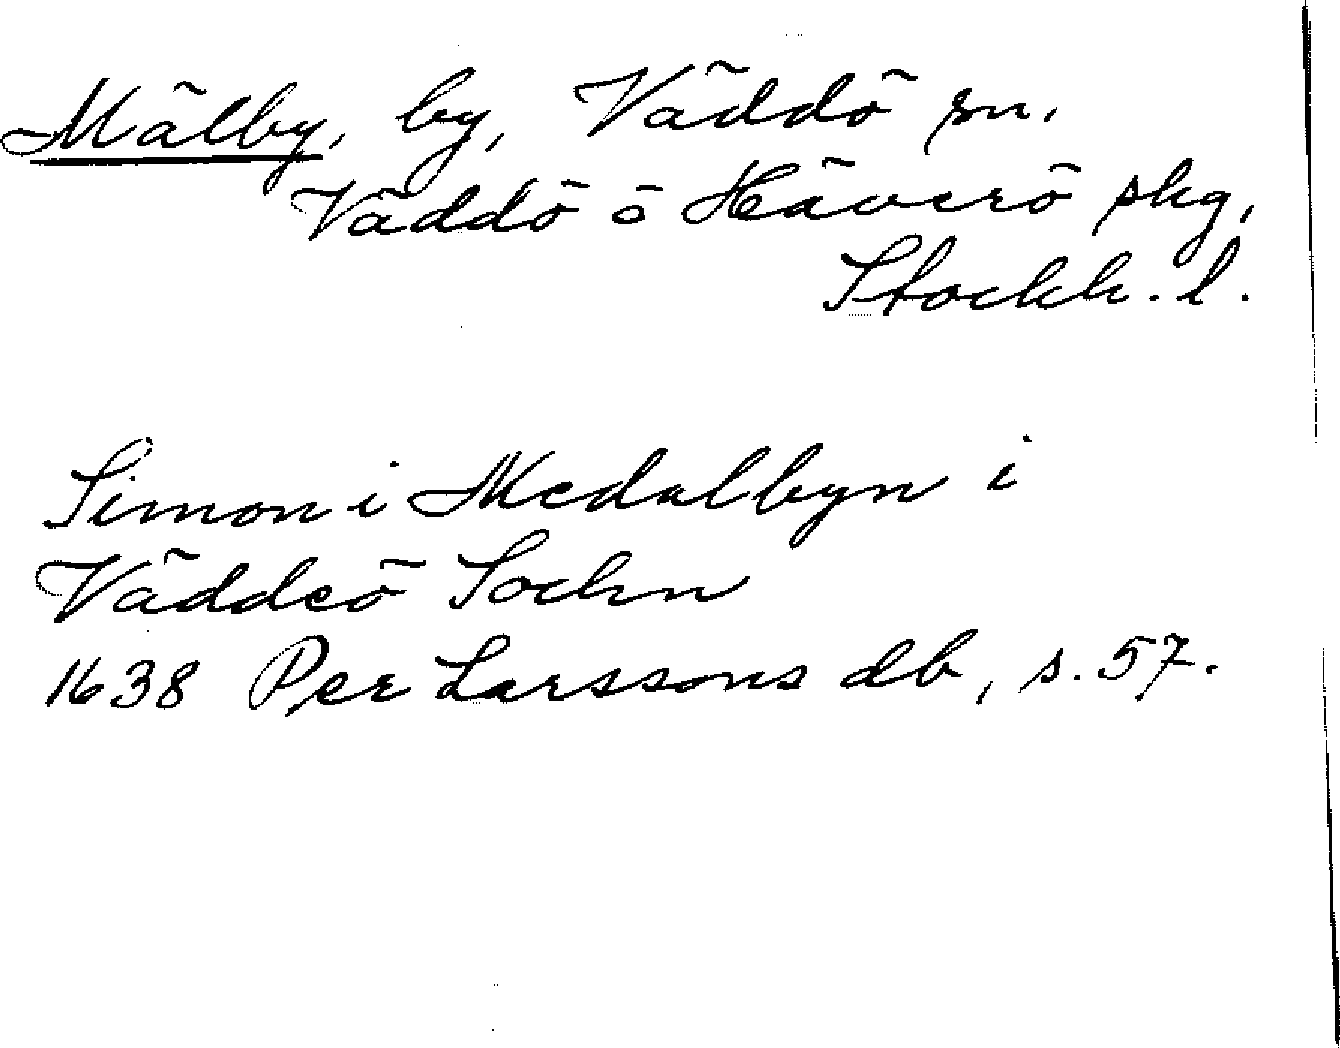 Mälby, by, Väddö sn.
Väddö o Häverö skg,
Stockh. l.
Simon i Medalbyn i
Väddeö Sochn
1638 Per Larssons db, s. 57.